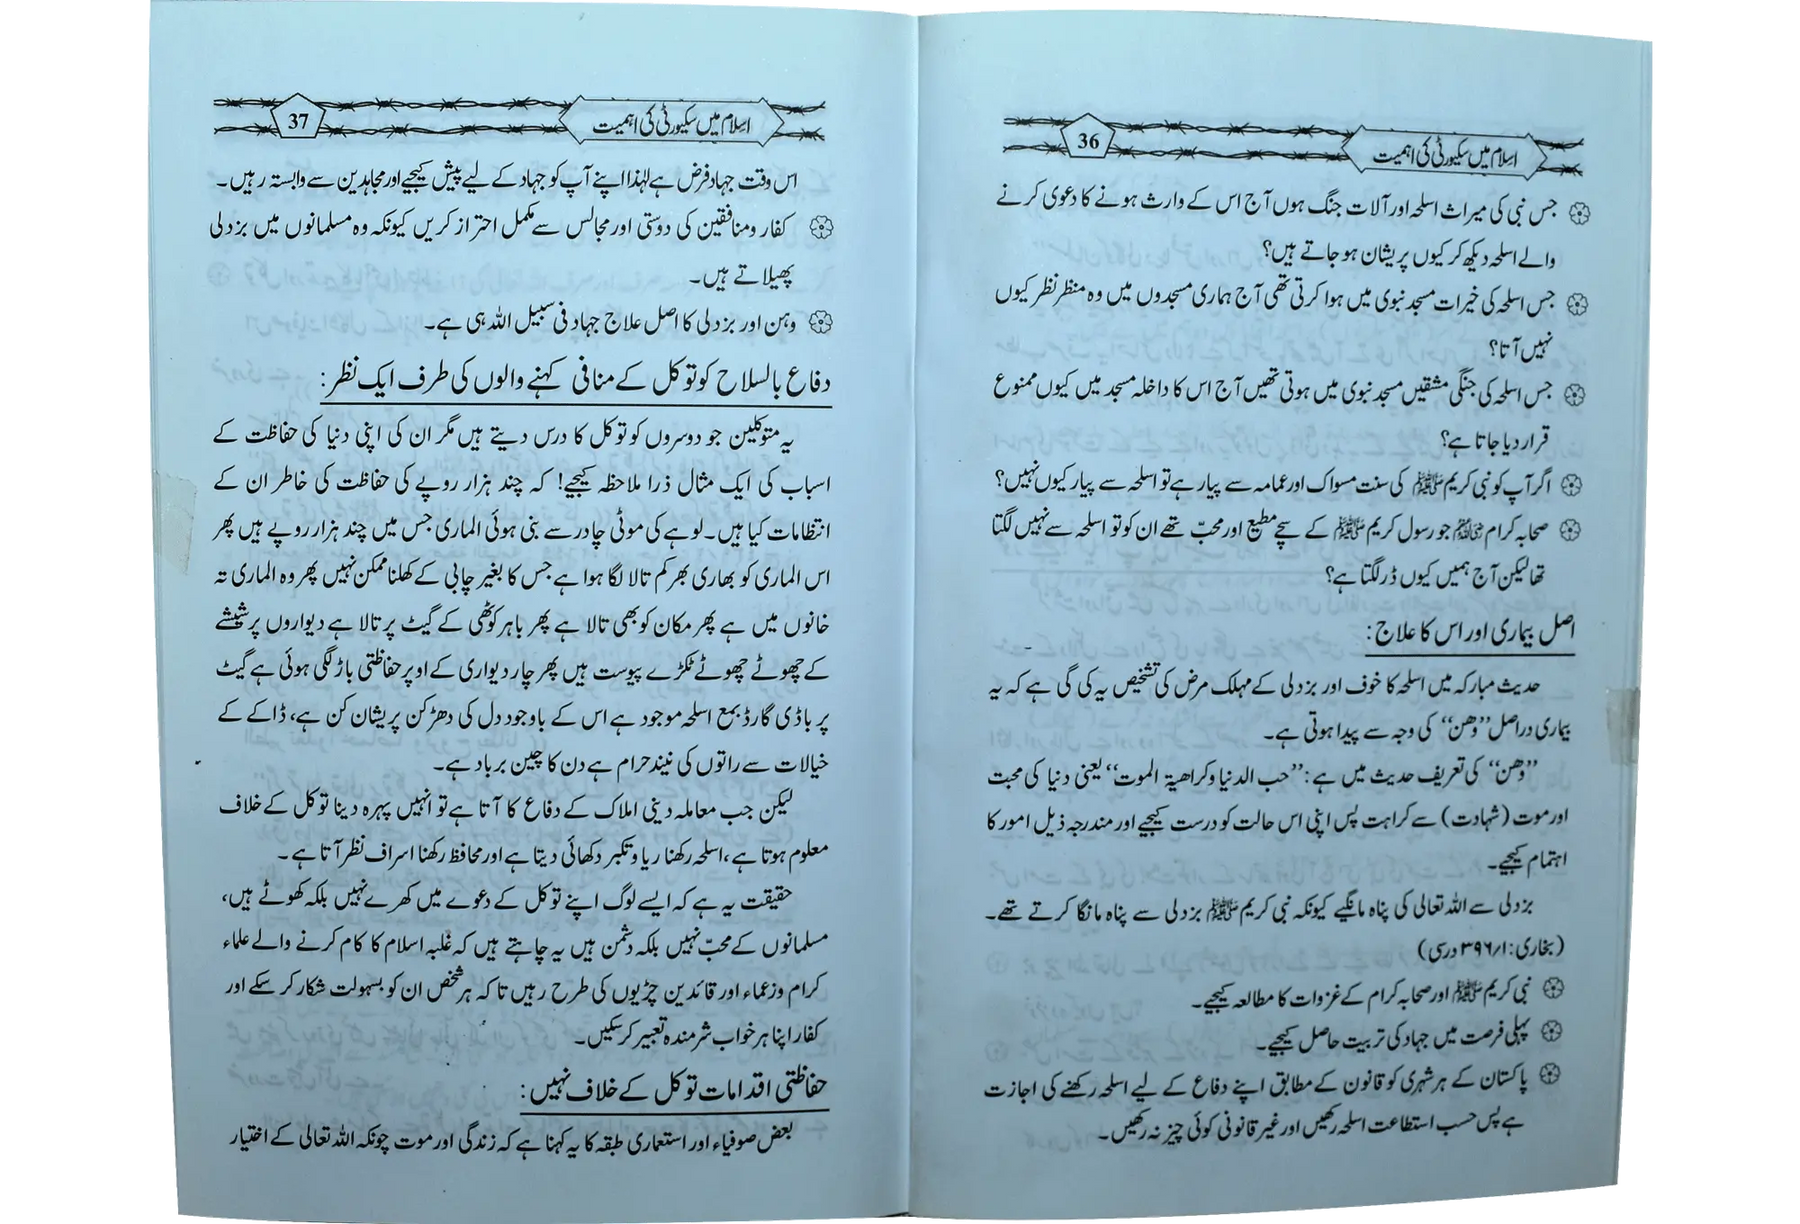 36
اسلام میں سکیورٹی کی اہمیت
جس نبی کی میراث اسلحہ اور آلات جنگ ہوں آج اس کے وارث ہونے کا دعوی کرنے
والے اسلحہ دیکھ کر کیوں پریشان ہو جاتے ہیں؟
جس اسلحہ کی خیرات مسجد نبوی میں ہوا کرتی تھی آج ہماری مسجدوں میں وہ منظر نظر کیوں
نہیں آتا؟
جس اسلحہ کی جنگی مشقیں مسجد نبوی میں ہوتی تھیں آج اس کا داخلہ مسجد میں کیوں ممنوع
قرار دیا جاتا ہے؟
اگر آپ کو نبی کریم ﷺ کی سنت مسواک اور عمامہ سے پیار ہے تو اسلحہ سے پیار کیوں نہیں؟
صحابہ کرام رضی اللہ عنہم جو رسول کریم ﷺ کے سچے مطیع اور محبّ تھے ان کو تو اسلحہ سے نہیں لگتا
تھا لیکن آج ہمیں کیوں ڈر لگتا ہے؟
اصل بیماری اور اس کا علاج:
حدیث مبارکہ میں اسلحہ کا خوف اور بزدلی کے مہلک مرض کی تشخیص یہ کی گی ہے کہ یہ
بیماری دراصل ”وھن“ کی وجہ سے پیدا ہوتی ہے۔
”وھن“ کی تعریف حدیث میں ہے: ”حب الدنیا وکراھیۃ الموت“ یعنی دنیا کی محبت
اور موت (شہادت) سے کراہت پس اپنی اس حالت کو درست کیجیے اور مندرجہ ذیل امور کا
اہتمام کیجیے۔
بزدلی سے اللہ تعالی کی پناہ مانگیے کیونکہ نبی کریم ﷺ بزدلی سے پناہ مانگا کرتے تھے۔
(بخاری: ۱/۳۹۶ درسی)
نبی کریم ﷺ اور صحابہ کرام کے غزوات کا مطالعہ کیجیے۔
پہلی فرصت میں جہاد کی تربیت حاصل کیجیے۔
پاکستان کے ہر شہری کو قانون کے مطابق اپنے دفاع کے لیے اسلحہ رکھنے کی اجازت
ہے پس حسب استطاعت اسلحہ رکھیں اور غیر قانونی کوئی چیز نہ رکھیں۔
37
اسلام میں سکیورٹی کی اہمیت
اس وقت جہاد فرض ہے لہٰذا اپنے آپ کو جہاد کے لیے پیش کیجیے اور مجاہدین سے وابستہ رہیں۔
کفار ومنافقین کی دوستی اور مجالس سے مکمل احتراز کریں کیونکہ وہ مسلمانوں میں بزدلی
پھیلاتے ہیں۔
وہن اور بزدلی کا اصل علاج جہاد فی سبیل اللہ ہی ہے۔
دفاع بالسلاح کو توکل کے منافی کہنے والوں کی طرف ایک نظر:
یہ متوکلین جو دوسروں کو توکل کا درس دیتے ہیں مگر ان کی اپنی دنیا کی حفاظت کے
اسباب کی ایک مثال ذرا ملاحظہ کیجیے! کہ چند ہزار روپے کی حفاظت کی خاطر ان کے
انتظامات کیا ہیں۔ لوہے کی موٹی چادر سے بنی ہوئی الماری جس میں چند ہزار روپے ہیں پھر
اس الماری کو بھاری بھر کم تالا لگا ہوا ہے جس کا بغیر چابی کے کھلنا ممکن نہیں پھر وہ الماری تہ
خانوں میں ہے پھر مکان کو بھی تالا ہے پھر باہر کوٹھی کے گیٹ پر تالا ہے دیواروں پر شیشے
کے چھوٹے چھوٹے ٹکڑے پیوست ہیں پھر چار دیواری کے اوپر حفاظتی باڑ لگی ہوئی ہے گیٹ
پر باڈی گارڈ بمع اسلحہ موجود ہے اس کے باوجود دل کی دھڑکن پریشان کن ہے، ڈاکے کے
خیالات سے راتوں کی نیند حرام ہے دن کا چین برباد ہے۔
لیکن جب معاملہ دینی املاک کے دفاع کا آتا ہے تو انہیں پہرہ دینا توکل کے خلاف
معلوم ہوتا ہے، اسلحہ رکھنا ریا وتکبر دکھائی دیتا ہے اور محافظ رکھنا اسراف نظر آتا ہے۔
حقیقت یہ ہے کہ ایسے لوگ اپنے توکل کے دعوے میں کھرے نہیں بلکہ کھوٹے ہیں،
مسلمانوں کے محبّ نہیں بلکہ دشمن ہیں یہ چاہتے ہیں کہ غلبہ اسلام کا کام کرنے والے علماء
کرام وزعماء اور قائدین چڑیوں کی طرح رہیں تا کہ ہر شخص ان کو بسہولت شکار کر سکے اور
کفار اپنا ہر خواب شرمندہ تعبیر کر سکیں۔
حفاظتی اقدامات توکل کے خلاف نہیں:
بعض صوفیاء اور استعماری طبقہ کا یہ کہنا ہے کہ زندگی اور موت چونکہ اللہ تعالی کے اختیار